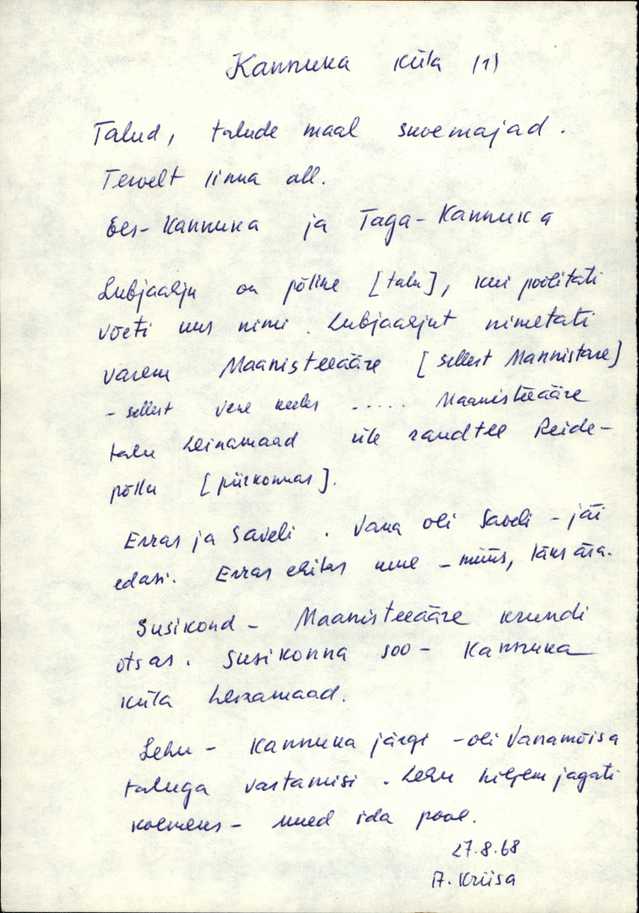 Kannuka küla (1)
Talud, talude maal suvemajad.
Tervelt linna all.
Ees-Kannuka ja Taga-Kannuka
Lubjaahju on põline [talu], kui poolitati
võeti uus nimi. Lubjaahjut nimetati
varem Maanisteeääre [sellest Mannistare]
- sellest vene keeles ..... Maanisteeääre
talu heinamaad üle randtee Reide-
põllu [piirkonnas].
Erras ja Saveli. Vana oli Saveli - jäi
edasi. Erras ehitas uue - müüs, läks ära.
Susikond - Maanisteeääre krundi
otsas. Susikonna soo - Kannuka
küla heinamaad.
Lehu - Kannuka järgi - oli Vanamõisa
taluga vastamisi. Lehu hiljem jagati
kolmeks - uued ida pool.
27.8.68
A. Kriisa